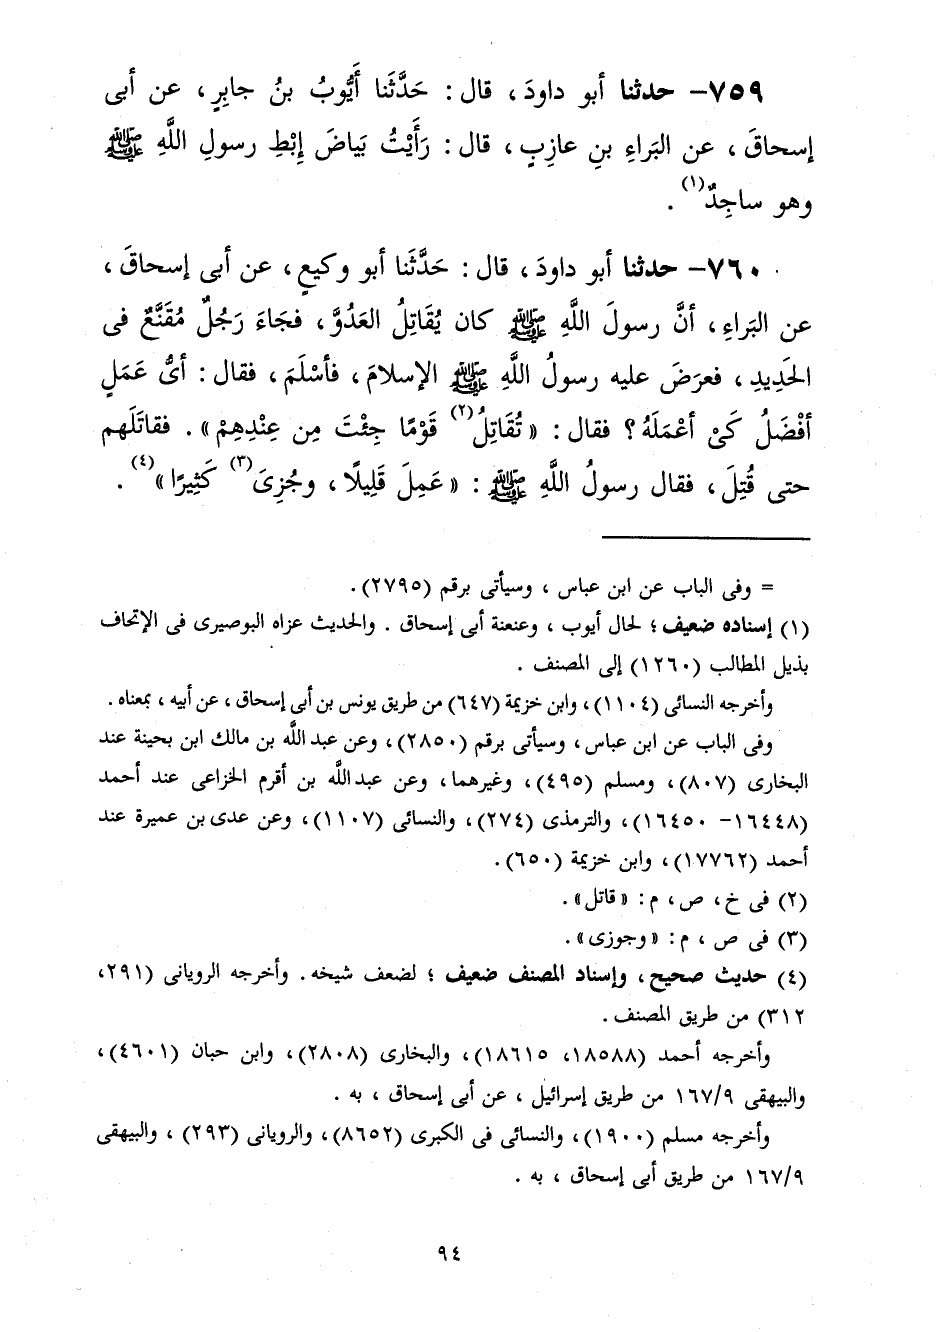 ٧٥٩- حدثنا أبو داودَ ، قال : حَدَّثَنا أَيُّوبُ بنُ جابِرٍ ، عن أبى
إسحاقَ ، عن البَراءِ بنِ عازِبٍ ، قال : رَأَيْتُ بَياضَ إِبْطِ رسولِ اللَّهِ ﷺ
وهو ساجِدٌ(١) .
٧٦٠- حدثنا أبو داودَ ، قال : حَدَّثَنا أبو وكيعٍ ، عن أبى إسحاقَ ،
عن البَراءِ ، أنَّ رسولَ اللَّهِ ﷺ كان يُقَاتِلُ العَدُوَّ ، فجَاءَ رَجُلٌ مُقَنَّعٌ فى
الحَدِيدِ ، فعرَضَ عليه رسولُ اللَّهِ ﷺ الإسلامَ ، فأسْلَمَ ، فقال : أىُّ عَمَلٍ
أفْضَلُ كَىْ أعْمَلَهُ ؟ فقال : « تُقَاتِلُ(٢) قَوْمًا جِئْتَ مِن عِنْدِهِمْ » . فقاتَلَهم
حتى قُتِلَ ، فقال رسولُ اللَّهِ ﷺ : « عَمِلَ قَلِيلًا ، وجُزِىَ(٣) كَثِيرًا »(٤) .
= وفى الباب عن ابن عباس ، وسيأتى برقم (٢٧٩٥) .
(١) إسناده ضعيف ؛ لحال أيوب ، وعنعنة أبى إسحاق . والحديث عزاه البوصيرى فى الإتحاف
بذيل المطالب (١٢٦٠) إلى المصنف .
وأخرجه النسائى (١١٠٤) ، وابن خزيمة (٦٤٧) من طريق يونس بن أبى إسحاق ، عن أبيه ، بمعناه .
وفى الباب عن ابن عباس ، وسيأتى برقم (٢٨٥٠) ، وعن عبد اللَّه بن مالك ابن بحينة عند
البخارى (٨٠٧) ، ومسلم (٤٩٥) ، وغيرهما ، وعن عبد اللَّه بن أقرم الخزاعى عند أحمد
(١٦٤٤٨- ١٦٤٥٠) ، والترمذى (٢٧٤) ، والنسائى (١١٠٧) ، وعن عدى بن عميرة عند
أحمد (١٧٧٦٢) ، وابن خزيمة (٦٥٠) .
(٢) فى خ ، ص ، م : « قاتل » .
(٣) فى ص ، م : « وجوزى » .
(٤) حديث صحيح ، وإسناد المصنف ضعيف ؛ لضعف شيخه . وأخرجه الرويانى (٢٩١،
٣١٢) من طريق المصنف .
وأخرجه أحمد (١٨٥٨٨، ١٨٦١٥) ، والبخارى (٢٨٠٨) ، وابن حبان (٤٦٠١) ،
والبيهقى ١٦٧/٩ من طريق إسرائيل ، عن أبى إسحاق ، به .
وأخرجه مسلم (١٩٠٠) ، والنسائى فى الكبرى (٨٦٥٢) ، والرويانى (٢٩٣) ، والبيهقى
١٦٧/٩ من طريق أبى إسحاق ، به .
٩٤